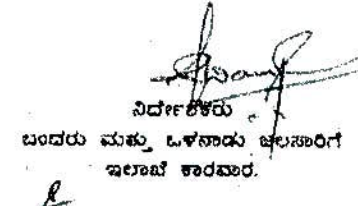 ನಿರ್ದೇಶಕರು
ಬಂದರು ಮತ್ತು ಒಳನಾಡು ಜಲಸಾರಿಗೆ
ಇಲಾಖೆ ಕಾರವಾರ.